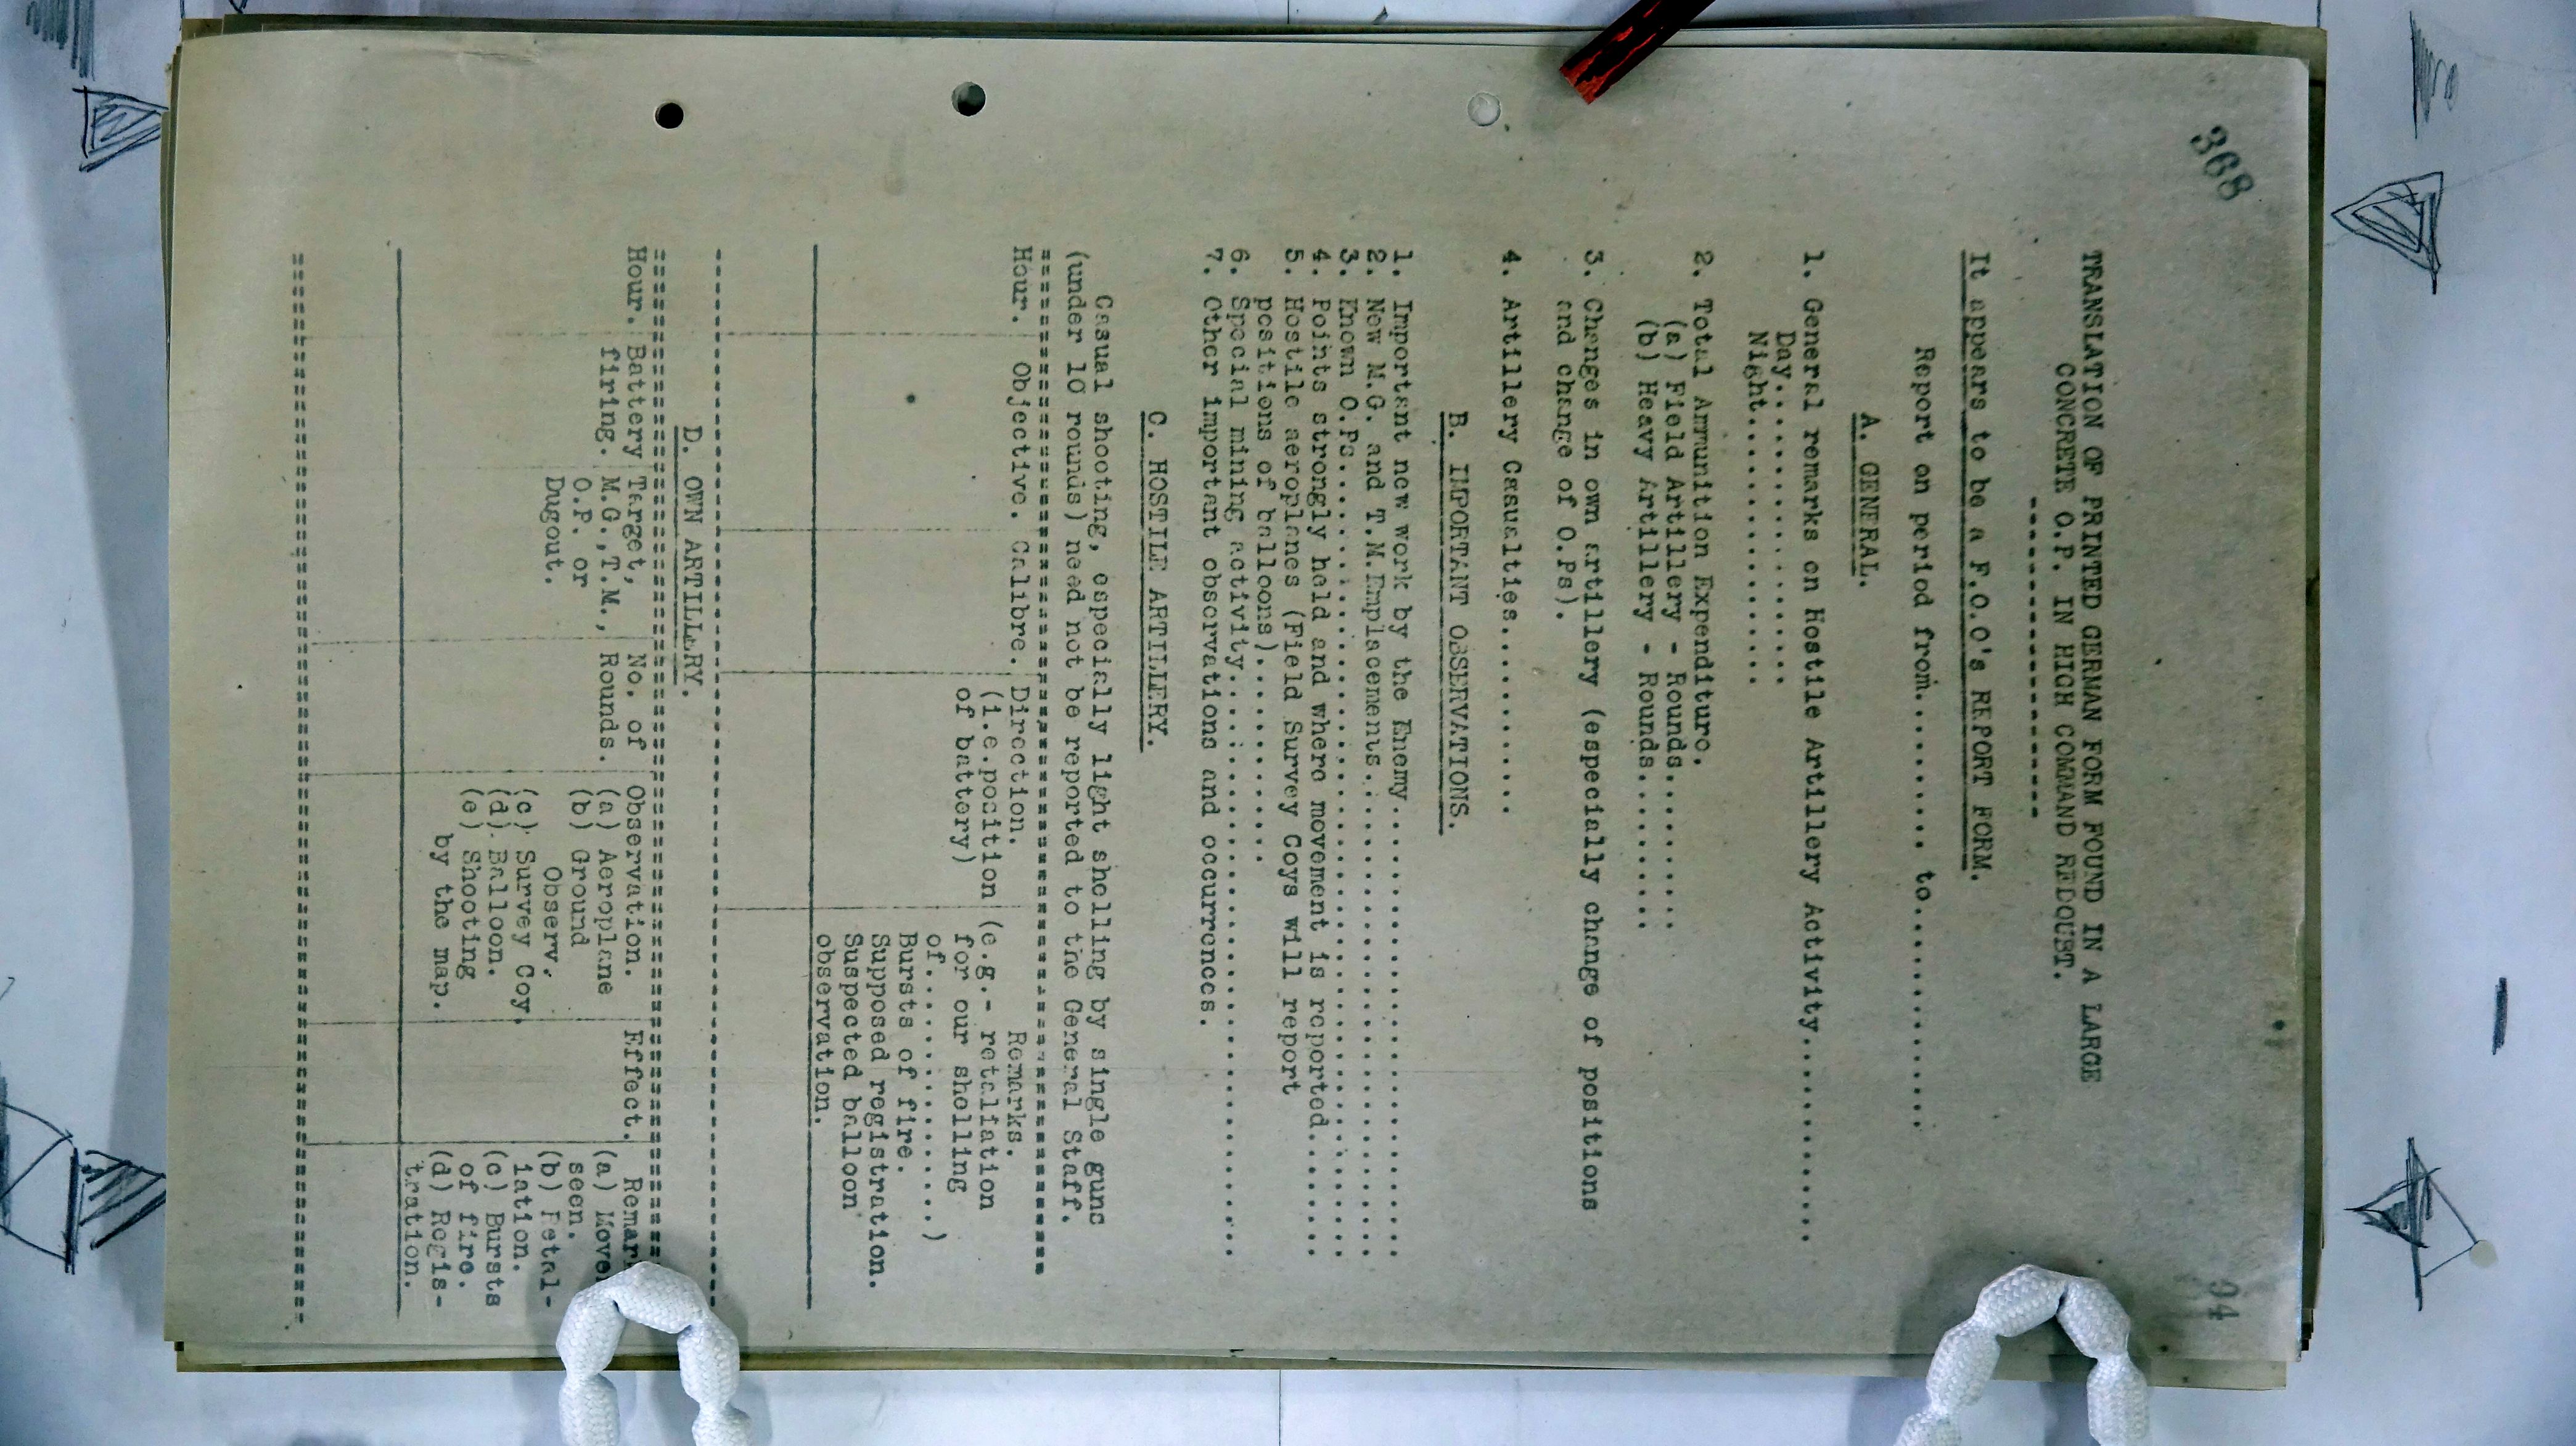 368
94
TRANSLATION OF PRINTED GERMAN FORM FOUND IN A LARGE
CONCRETE O.P. IN HIGH COMMAND REDOUBT.
----------------------
It appears to be a F.O.O's REPORT FORM.
Report on period from............ to..................
A. GENERAL.
1. General remarks on Hostile Artillery Activity................
Day..................
Night.................
2. Total Ammunition Expenditure.
(a) Field Artillery - Rounds..........
(b) Heavy Artillery - Rounds..........
3. Changes in own artillery (especially change of positions
and change of O.Ps).
4. Artillery Casualties.............
B. IMPORTANT OBSERVATIONS.
1. Important new work by the Enemy..............................
2. New M.G. and T.M.Emplacements................................
3. Known O.Ps...................................................
4. Points strongly held and where movement is reported..........
5. Hostile aeroplanes (Field Survey Coys will report
positions of balloons).............
6. Special mining activity......................................
7. Other important observations and occurrences.
C. HOSTILE ARTILLERY.
Casual shooting, especially light shelling by single guns
(under 10 rounds) need not be reported to the General Staff.
Hour. Objective. Calibre. Direction. Remarks.
(i.e.position (e.g.- retaliation
of battery) for our shelling
of..................)
Bursts of fire.
Supposed registration.
Suspected balloon
observation.
D. OWN ARTILLERY.
Hour. Battery Target, No. of Observation. Effect. Remar
firing. M.G.,T.M., Rounds. (a) Aeroplane (a) Move
O.P. or (b) Ground seen.
Dugout. Observ. (b) Retal-
(c) Survey Coy. iation.
(d) Balloon. (c) Bursts
(e) Shooting of fire.
by the map. (d) Regis-
tration.